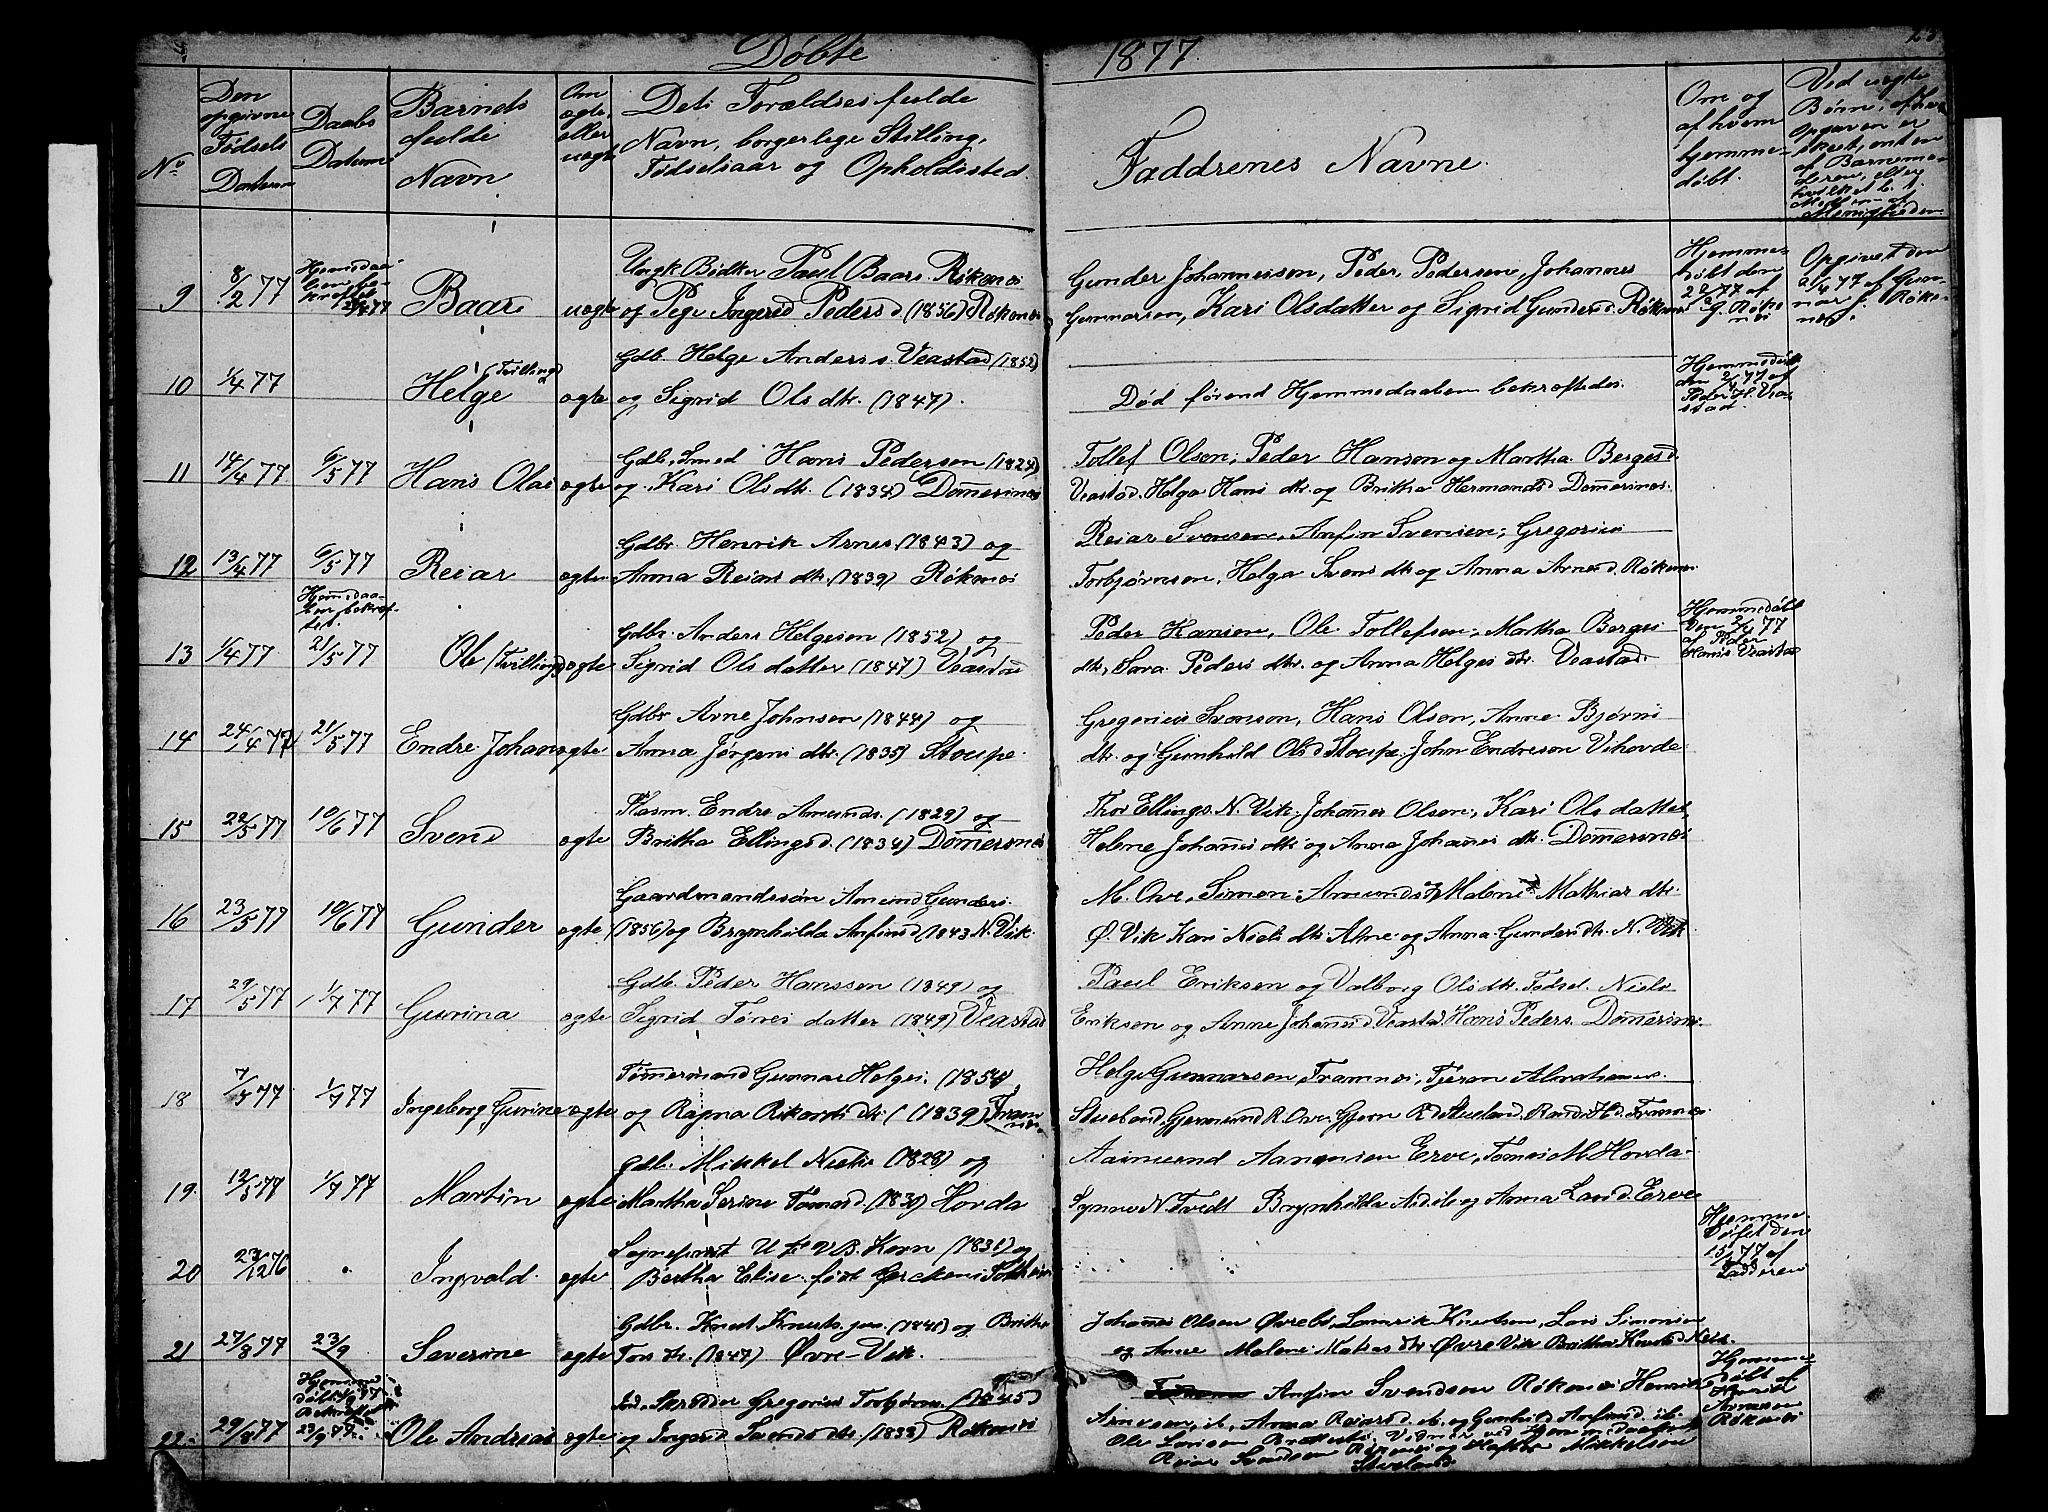 Døbte 1877.
No
Den opgivne Fødsels Datum
Daabs Datum
Barnets fulde Navn
Om ægte eller uægte
Dets Forældres fulde Navn, borgerlige Stilling, Fødselsaar og Opholdssted
Faddrenes Navne.
Om og af hvem hjemme-døbt.
Ved uægte Børn, af hvem Opgaven er skeet, enten af Barnemoderen, eller
9 8/2 77 Baar uægte
Ungk. Bødker Paul Baars. Røkenes
og Pige Ingered Pedersd. (1856) Røkenes
Gunder Johannesson, Peder Pedersen, Johannes
Gunnarson, Kari Olsdatter og Sigrid Gundersd. Røkenes
Hjemme-døbt den
Opgivet den
10 1/4 77 Helge (Tvilling) ægte
Gdb. Helge Anders s. Veastad (1852)
og Sigrid Ols dtr. (1847).
Død førend Hjemmedaaben bekræftedes.
Hjemmedøbt den 2/4 77 af Peder H. Veastad.
11 14/4 77 6/5 77 Hans Olai ægte
Gdb. Smed Hans Pedersen (1824)
og Kari Ols dtr. (1834) Dommersnes
Tollef Olsen, Peder Hanson og Martha Bergesd.
Veastad. Helga Hans dtr. og Britha Hermandsd. Dommersnes.
12 13/4 77 6/5 77 Reiar ægte
Gdbr. Henrik Arnes. (1843) og
Anna Reiars dtr. (1839) Røkenes
Reiar Svensen, Anfin Svensen, Gregorius
Torbjørnsen, Helga Svens dtr. og Anna Arnesd. Røkenes
13 1/4 77 Hjemdaaben bekræftet. 21/5 77 Ole (Tvilling) ægte
Gdbr. Anders Helgeson (1852) og
Sigrid Ols datter (1847) Veastad
Peder Hansen, Ole Tollefsen, Martha Berges
dtr., Sara Peders dtr. og Anna Helges dtr. Veastad.
Hjemmedøbt den 2/4 77 af Peder Hans. Veastad
14 24/4 77 21/5 77 Endre Johan ægte
Gdbr. Arne Johnsen (1844) og
Anna Jørgens dtr. (1835) Stoupe.
Gregorius Svenson, Hans Olsen, Anne Bjørns
dtr. og Gunhild Olsd. Stoupe. John Endreson Vihovde
15 22/5 77 10/6 77 Svend ægte
Plasm. Endre Amunds. (1829) og
Britha Ellingsd. (1834) Dommersnes
Thor Ellings. N. Vik. Johannes Olsen, Kari Ols datter,
Helene Johannes dtr. og Anna Johannes dtr. Dommersnes
16 23/5 77 10/6 77 Gunder ægte
Gaardmandssøn Amund Gunders.
(1856) og Brynhilda Anfinsd. (1843 N. Vik.
M. Ove, Simon Amunds og Malene Mathias dtr.
Ø. Vik Kari Niels dtr. Alne og Anna Gunders dtr. N. Vik.
17 29/5 77 1/7 77 Gurina ægte
Gdb. Peder Hanssen (1849) og
Sigrid Tønnes datter (1849) Veastad
Paul Eriksen og Valborg Ols dtr. Tedsel. Niels
Eriksen og Anne Johannesd. Veastad. Hans Peders. Dommersnes.
18 7/5 77 1/7 77 Ingeborg Gurine ægte
Tømmermand Gunnar Helges. (1854)
og Ragna Rikords dtr. (1839) Framnes
Helge Gunnarsen Framnes, Tjeran Abrahams.
Stueland, Gjermund R. Ove. Gjern R.d. Stueland. Randi H.d. Framnes.
19. 12/5 77 1/7 77 Martin ægte
Gdb. Mikkel Niels. (1828) og
Martha Serine Tomasd. (1839) Hovda
Aasmund Aanensen Erve, Tomas M. Hovda
Synne N. Tvedt Brynhilda A.d. ib. og Anna Larsd. Erve
20 23/12 76 Ingvald. ægte
Sogneprest U. F. V. B. Korn (1831) og
Bertha Elise født Gercken
Hjemmedøbt den 15/1 77 af Faderen
21 27/8 77 23/9 Severine ægte
Gdbr. Knut Knuts. jun. (1848) og Britha
Tors dtr. (1847). Øvre-Vik.
Johannes Olsen Øvrebø, Lamrik Knutsen, Lars Simonsen
og Anne Malene Matias dtr. Øvre Vik Britha Knutsd.
22. 29/8 77 Hjemmedøbt 4/9 77 Bekræftet 23/9 77. Ole Andreas ægte
Ind. Skrædder Gregorius Torbjørns. (1845)
og Ingerd Svends dtr. (1838) Røkenes
Anfin Svendsen Røkenes Henrik
Arnesen, ib., Anna Reiarsd. ib. og Gunhild Anfinsd. ib.
Ole Larssen Brattestø. Vidner ved Hjemmedaaben
Reiar Svendsen Røkenes og Haftor Mikkelsen
Stueland
Hjemmedøbt af Henrik Arnesen Røkenes